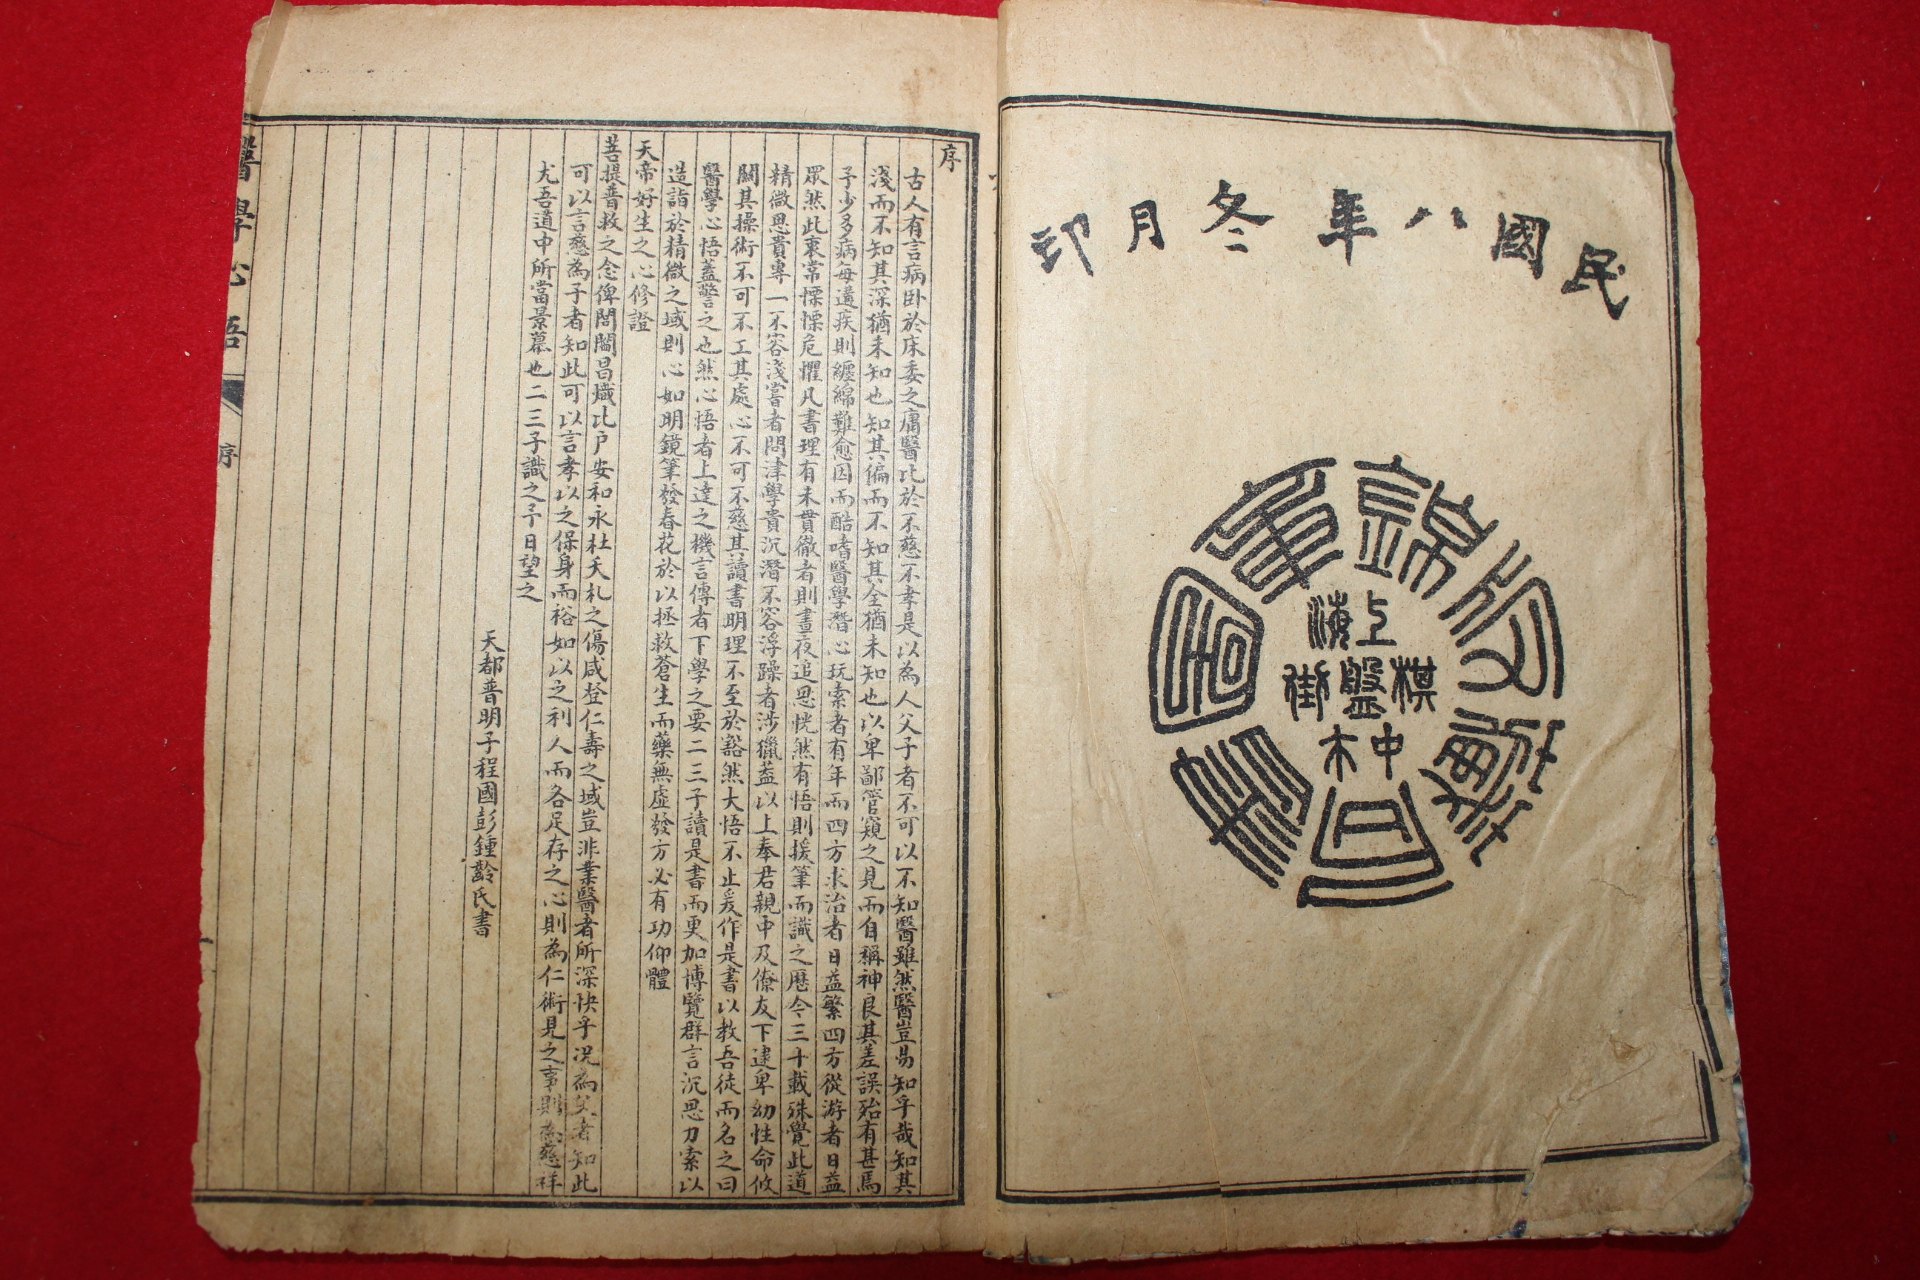 民國八年冬月印
上海
棋盤街
中市
錦章圖書
序
古人有言病卧於床委之庸醫比於不慈不孝是以為人父子者不可以不知醫雖然醫豈易知乎哉知其
淺而不知其深猶未知也知其偏而不知其全猶未知也以卑鄙管窺之見而自稱神良其差誤殆有甚焉
予少多病每遘疾則纏綿難愈因而酷嗜醫學潛心玩索者有年而四方求治者日益繁四方從游者日益
眾然此衷常慄慄危懼凡書理有未貫徹者則晝夜追思恍然有悟則援筆而識之歷今三十載殊覺此道
精微思貴專一不容淺嘗者問津學貴沉潛不容浮躁者涉獵蓋以上奉君親中及僚友下逮卑幼性命攸
關其操術不可不工其處心不可不慈其讀書明理不至於豁然大悟不止爰作是書以教吾徒而名之曰
醫學心悟蓋警之也然心悟者上達之機言傳者下學之要二三子讀是書而更加博覽群言沉思力索以
造詣於精微之域則心如明鏡筆發春花於以拯救蒼生而藥無虛發方必有功仰體
天帝好生之心修證
菩提普救之念俾閭閻昌熾比户安和永杜夭札之傷咸登仁壽之域豈非業醫者所深快乎況為父者知此
可以言慈為子者知此可以言孝以之保身而裕如以之利人而各足存之心則為仁術見之事則為慈祥
尤吾道中所當景慕也二三子識之予日望之
天都普明子程國彭鍾齡氏書
醫學心悟
序